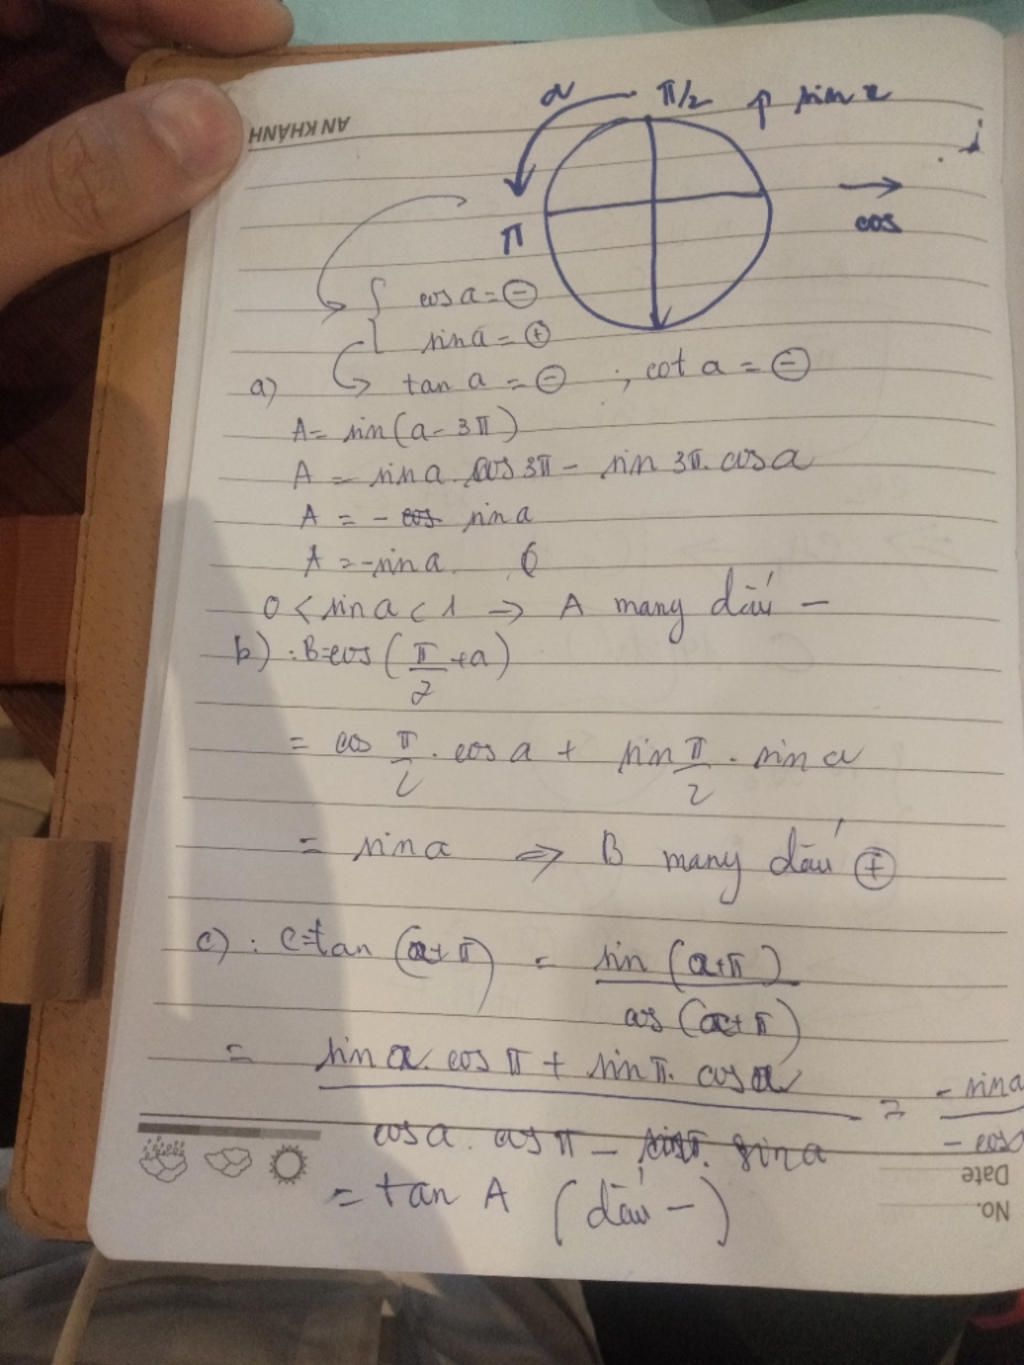 AN KHÁNH
a π/2 ↑ sin x
→
π cos
{ cos a = ⊖
sin a = ⊕
a) → tan a = ⊖ ; cot a = ⊖
A = sin(a - 3π)
A = sin a . cos 3π - sin 3π . cos a
A = - cos sin a
A = -sin a.
0 < sin a < 1 => A mang dấu -
b) : B = cos (π/2 + a)
= cos π/2 . cos a + sin π/2 . sin a
= sin a => B mang dấu ⊕
c) : C = tan (a + π) = sin (a + π) / cos (a + π)
= sin a . cos π + sin π . cos a / cos a . cos π - sin π . sin a = - sin a / - cos
= tan A (dấu -)
Date
No.